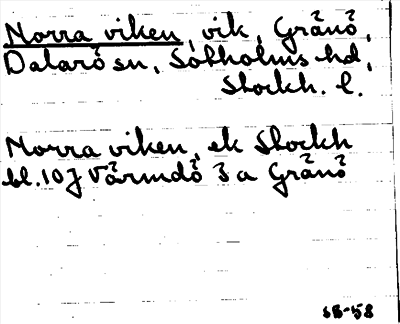 Norra viken, vik, Gränö,
Dalarö sn, Sotholms hd,
Stockh. l.
Norra viken, ek Stockh
bl. 10 J Värmdö 3 a Gränö
SB-58